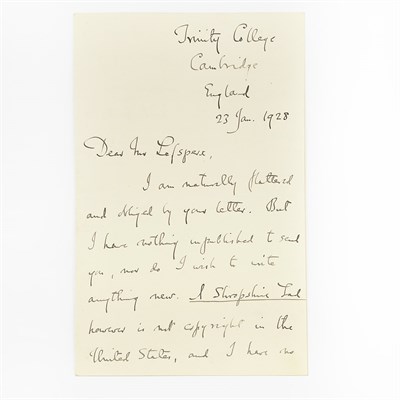 Trinity College
Cambridge
England
23 Jan. 1928
Dear Mr
I am naturally flattered
and obliged by your letter. But
I have nothing unpublished to send
you, nor do I wish to write
anything new. A Shropshire Lad
however is not copyright in the
United States, and I have no